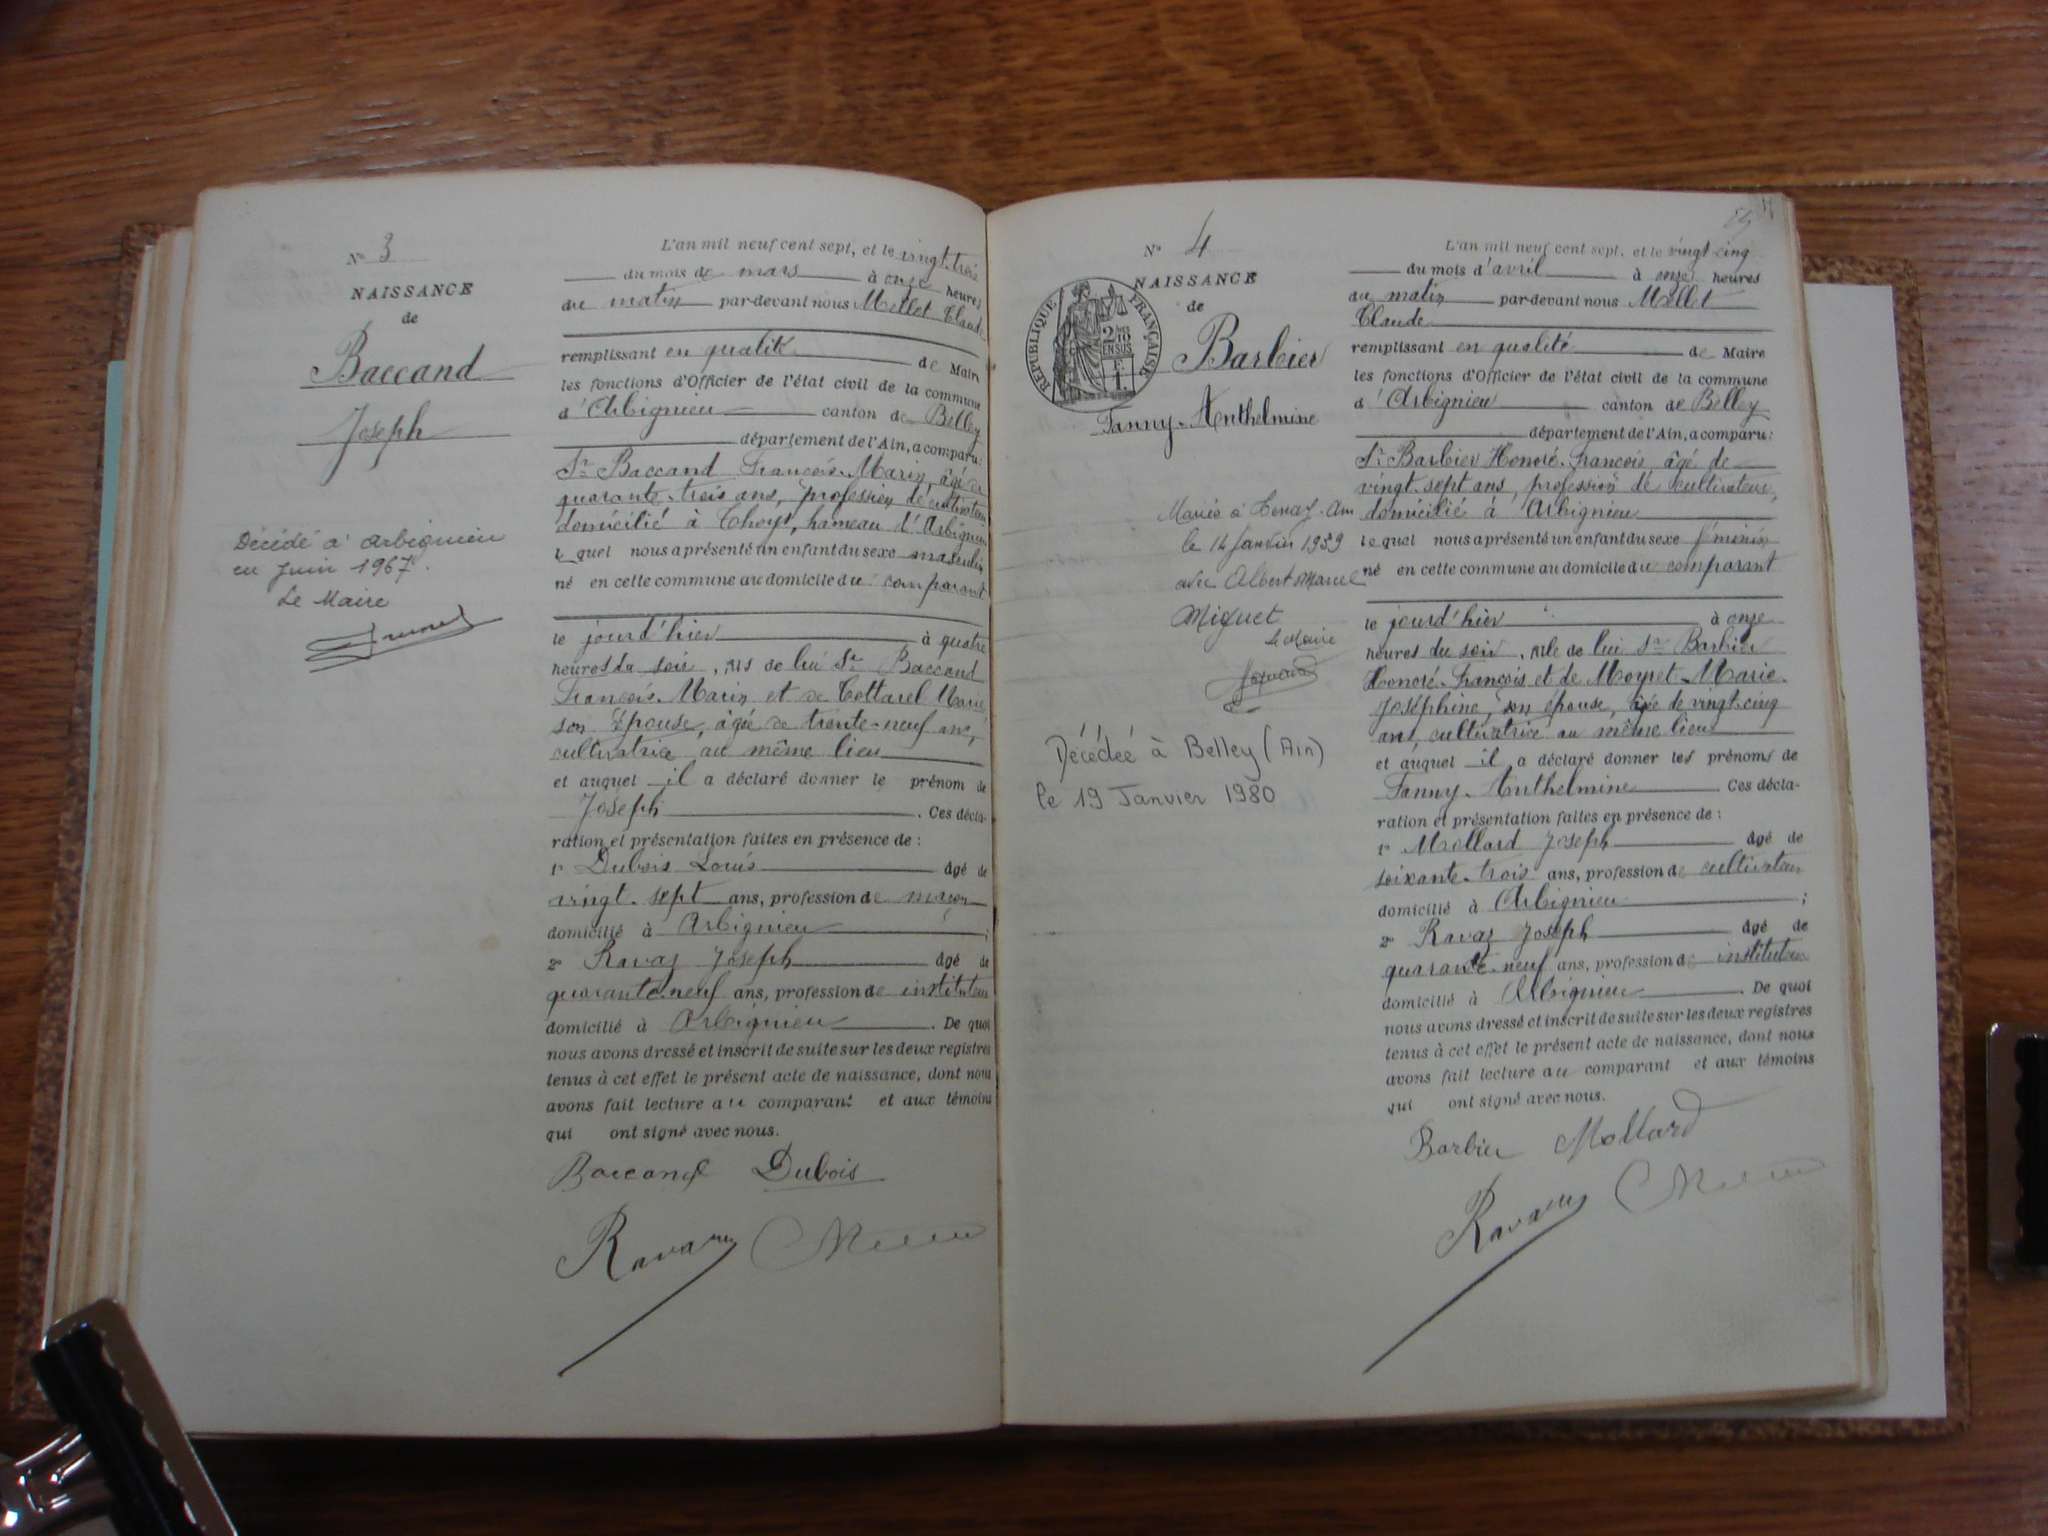 N° 3
NAISSANCE
de
Baccand
Joseph
Décédé à Arbignieu
en Juin 1967.
Le Maire
L'an mil neuf cent sept, et le vingt-trois
du mois de mars à onze heures
du matin par-devant nous Mellet Claude
remplissant en qualité de Maire
les fonctions d'Officier de l'état civil de la commune
d'Arbignieu canton de Belley
département de l'Ain, a comparu:
Sr Baccand François-Marin, âgé de
quarante-trois ans, profession de cultivateur
domicilié à Thoys, hameau d'Arbignieu
lequel nous a présenté un enfant du sexe masculin
né en cette commune au domicile du comparant
le jourd'hier à quatre
heures du soir, fils de lui Sr Baccand
François-Marin et de Cottarel Marie
son épouse, âgée de trente-neuf ans,
cultivatrice au même lieu
et auquel il a déclaré donner le prénom de
Joseph. Ces décla-
ration et présentation faites en présence de:
1° Dubois Louis âgé de
vingt-sept ans, profession de maçon
domicilié à Arbignieu;
2° Ravaz Joseph âgé de
quarante-neuf ans, profession de instituteur
domicilié à Arbignieu. De quoi
nous avons dressé et inscrit de suite sur les deux registres
tenus à cet effet le présent acte de naissance, dont nous
avons fait lecture au comparant et aux témoins
qui ont signé avec nous.
Baccand Dubois
Ravaz Mellet
N° 4
NAISSANCE
de
RÉPUBLIQUE FRANÇAISE
2/10 EN SUS
Barbier
Fanny-Anthelmine
Mariée à Tenay-Ain
le 14 janvier 1939
avec Albert Marcel
Miguet
Le Maire
Décédée à Belley (Ain)
le 19 Janvier 1980
L'an mil neuf cent sept, et le vingt-cinq
du mois d'avril à onze heures
du matin par-devant nous Mellet
Claude
remplissant en qualité de Maire
les fonctions d'Officier de l'état civil de la commune
d'Arbignieu canton de Belley
département de l'Ain, a comparu:
Sr Barbier Honoré-François âgé de
vingt-sept ans, profession de cultivateur,
domicilié à Arbignieu
lequel nous a présenté un enfant du sexe féminin
né en cette commune au domicile du comparant
le jourd'hier à onze
heures du soir, fille de lui Sr Barbier
Honoré-François et de Meyret-Marie-
Joséphine, son épouse, âgée de vingt-cinq
ans, cultivatrice au même lieu
et auquel il a déclaré donner les prénoms de
Fanny-Anthelmine. Ces décla-
ration et présentation faites en présence de:
1° Mollard Joseph âgé de
soixante-trois ans, profession de cultivateur
domicilié à Arbignieu;
2° Ravaz Joseph âgé de
quarante-neuf ans, profession de instituteur
domicilié à Arbignieu. De quoi
nous avons dressé et inscrit de suite sur les deux registres
tenus à cet effet le présent acte de naissance, dont nous
avons fait lecture au comparant et aux témoins
qui ont signé avec nous.
Barbier Mollard
Ravaz Mellet